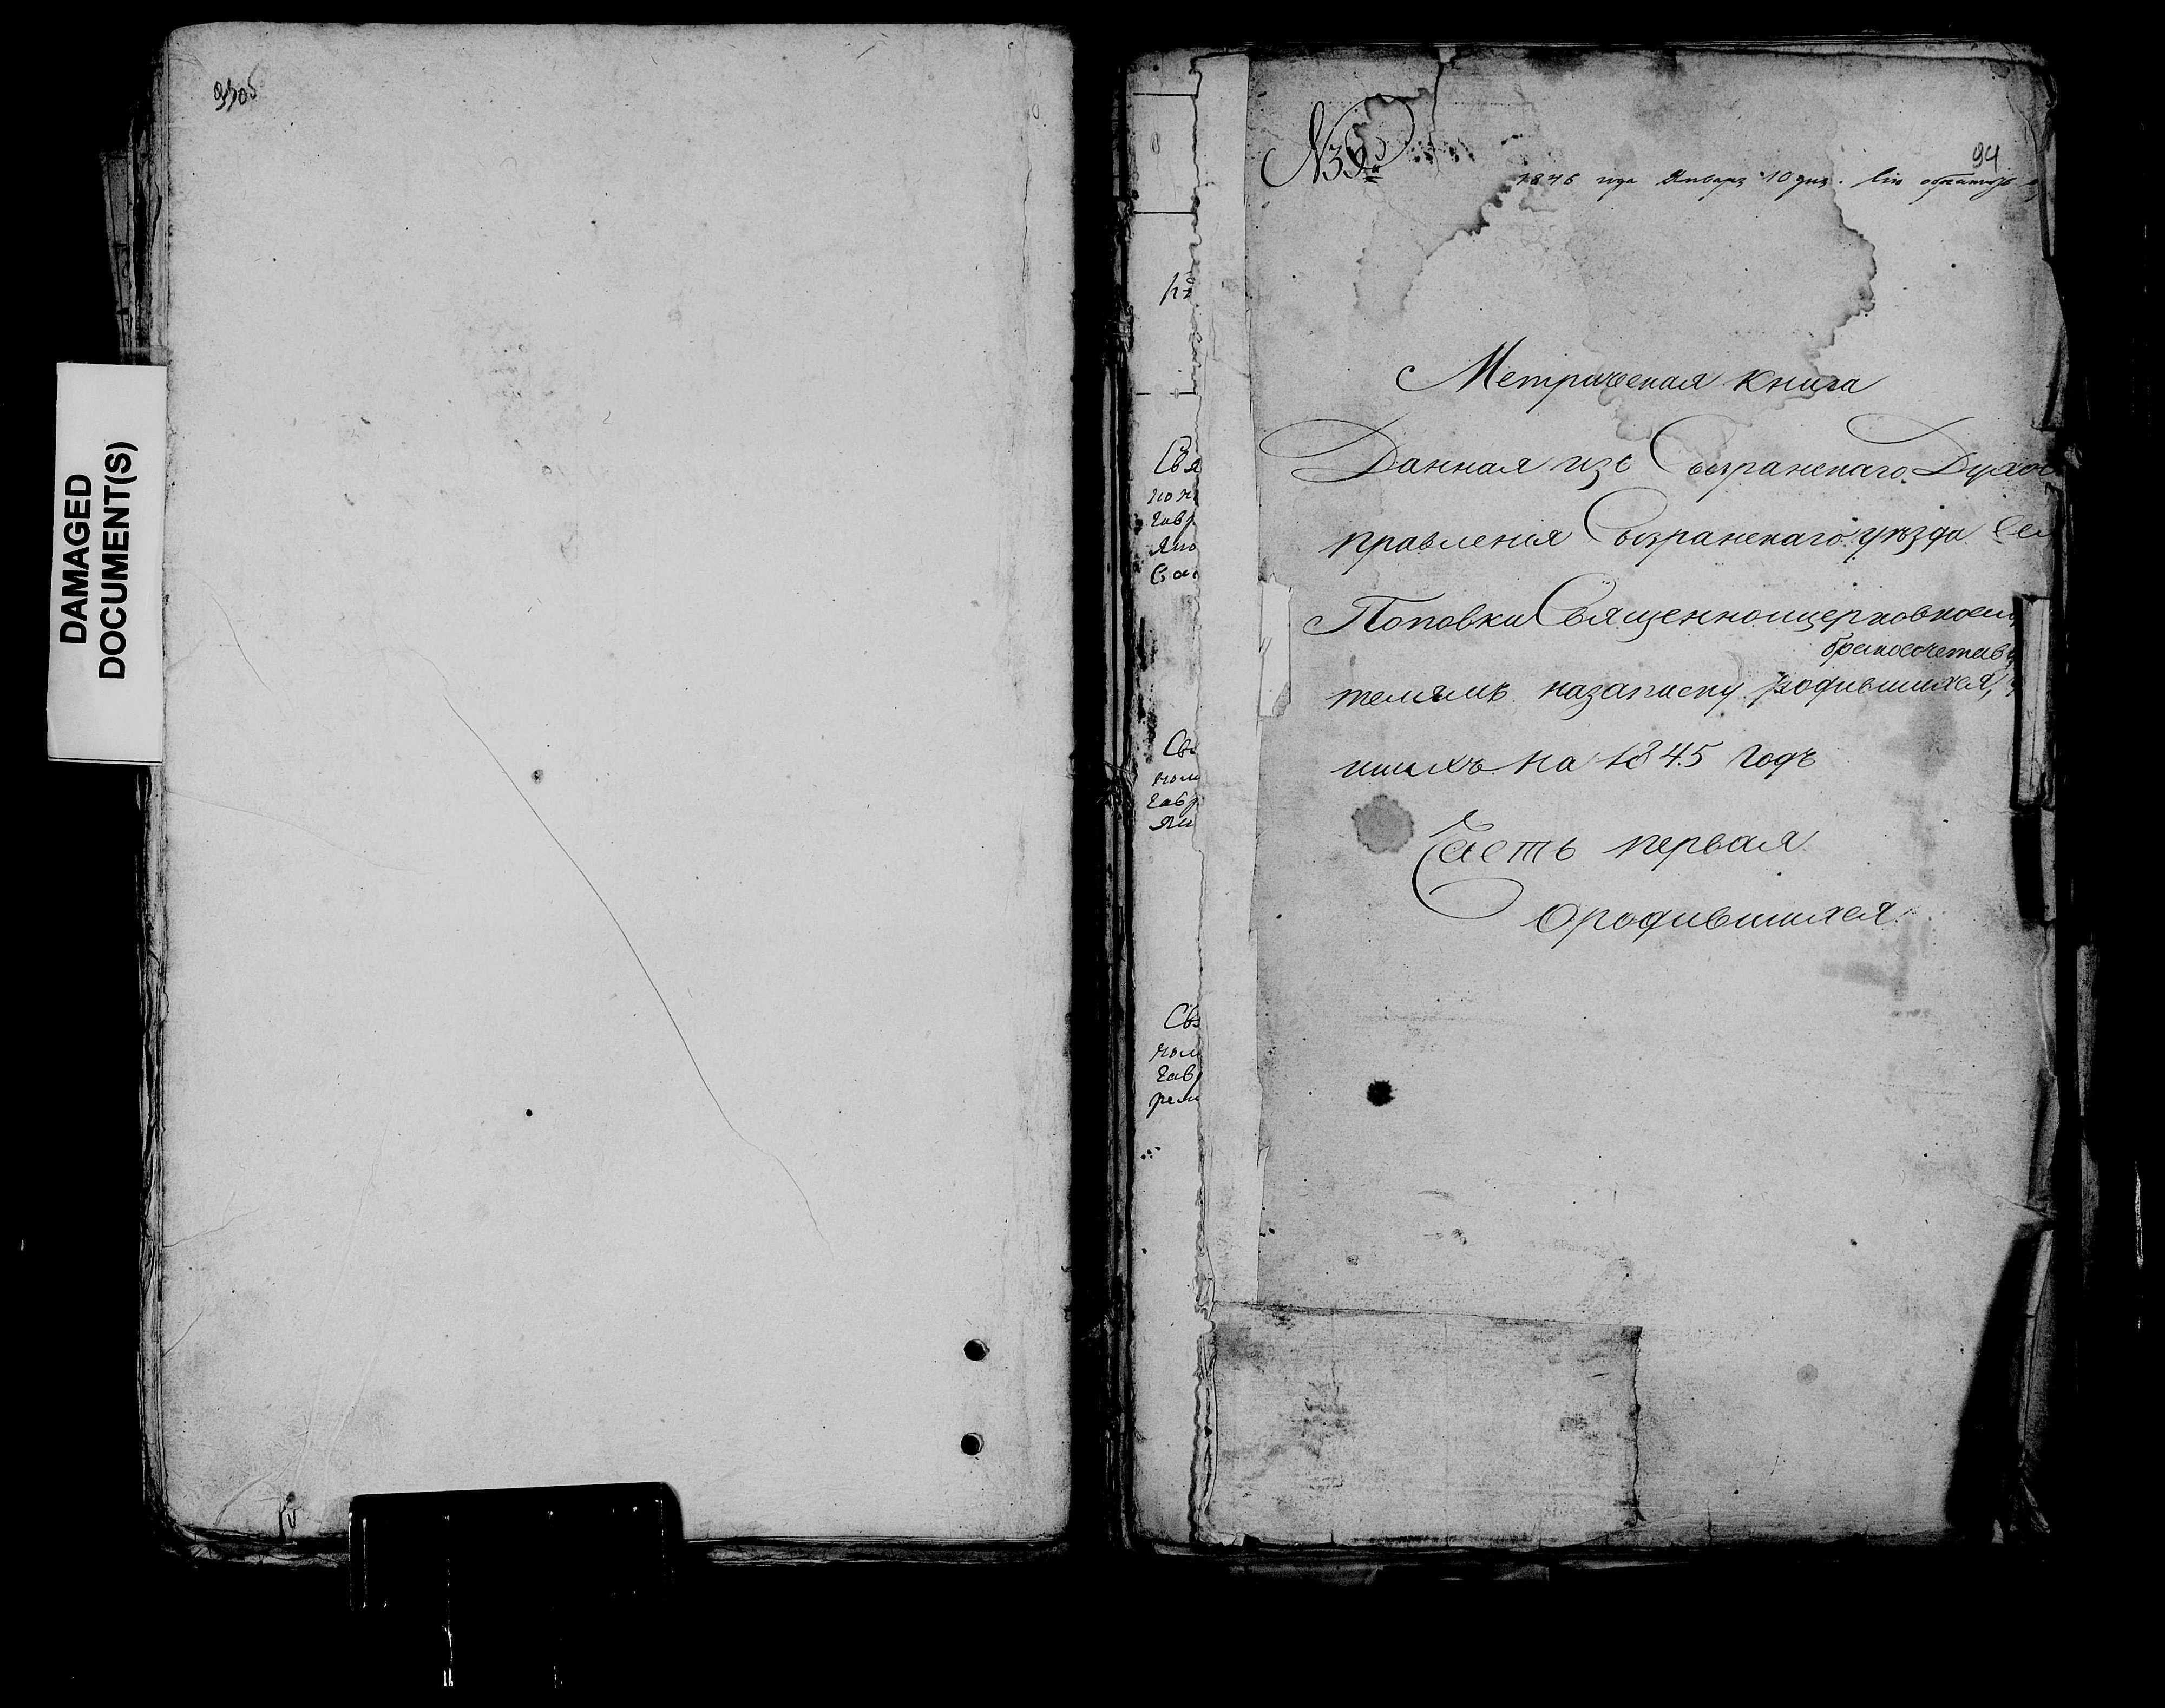 DAMAGED
DOCUMENT(S)
94
1846 года Января 10 дня.
Метрическая книга
Данная изъ Сызранскаго Духов
правления Сызранскаго уѣзда Сел
Поповки Священноицерковнослу
бракосочетав
телямъ назаписку родившихся,
шихъ на 1845 Годъ
Часть первая
Ородившихся.
Свя
Гавр
Гавр
Гав